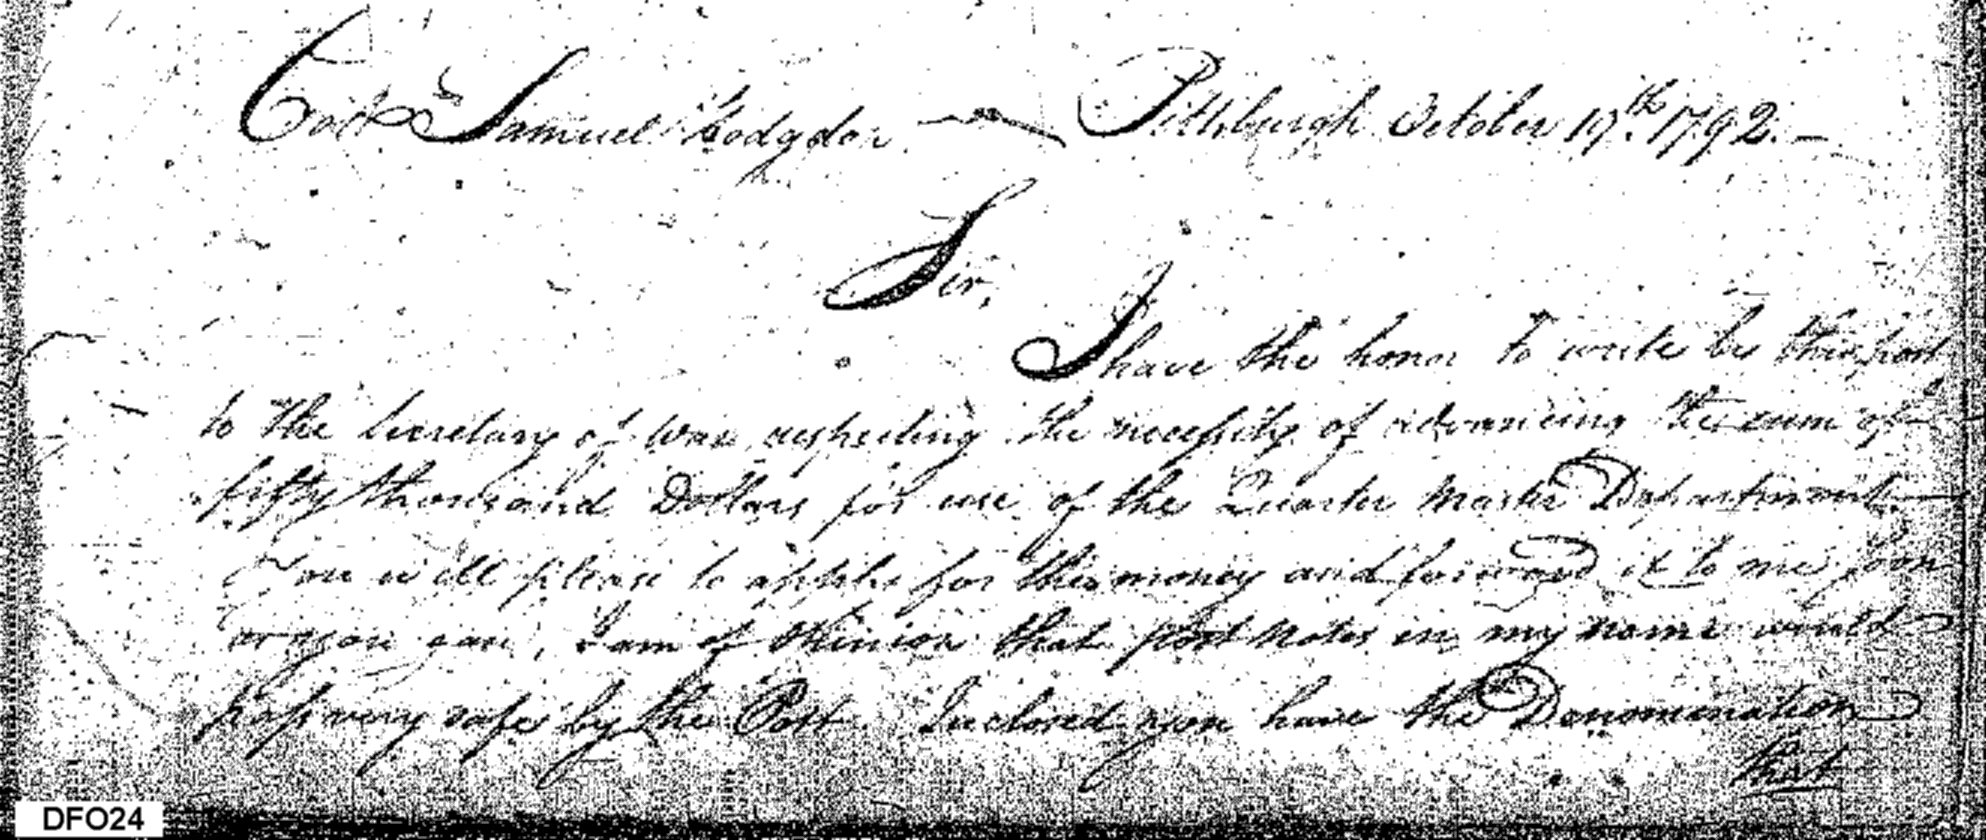 Samuel Hodgdon Pittsburgh October 19th. 1792.
Sir,
I have the honor to write by this post
to the Secretary of War respecting the necessity of advancing the sum of
fifty thousand Dollars for use of the Quarter Master Department
You will please to apply for this money and forward it to me soon
as you can, I am of Opinion that post notes in my name would
pass very safe by the Post. Inclosed you have the Denomination
that
DFO24